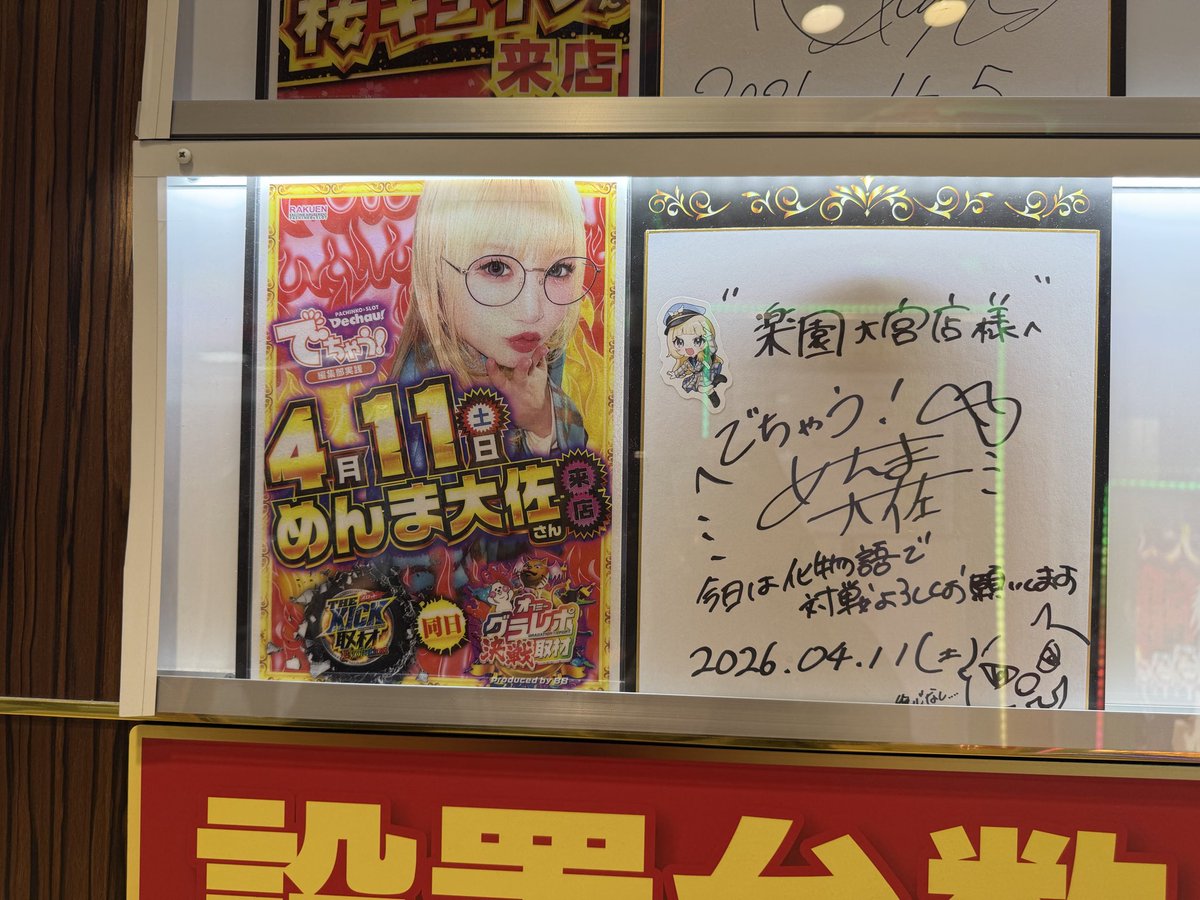 来店
RAKUEN
PACHINKO・SLOT
Dechau!
でちゃう!
編集部実践
4月11土日
めんま大佐さん
来店
THE
KICK
取材
同日
グラレポ
決戦取材
Produced by BB
"楽園大宮店様へ"
でちゃう!
めんま
大佐
今日は化物語で
対戦よろしくお願いします
2026.04.11(土)
設置台数